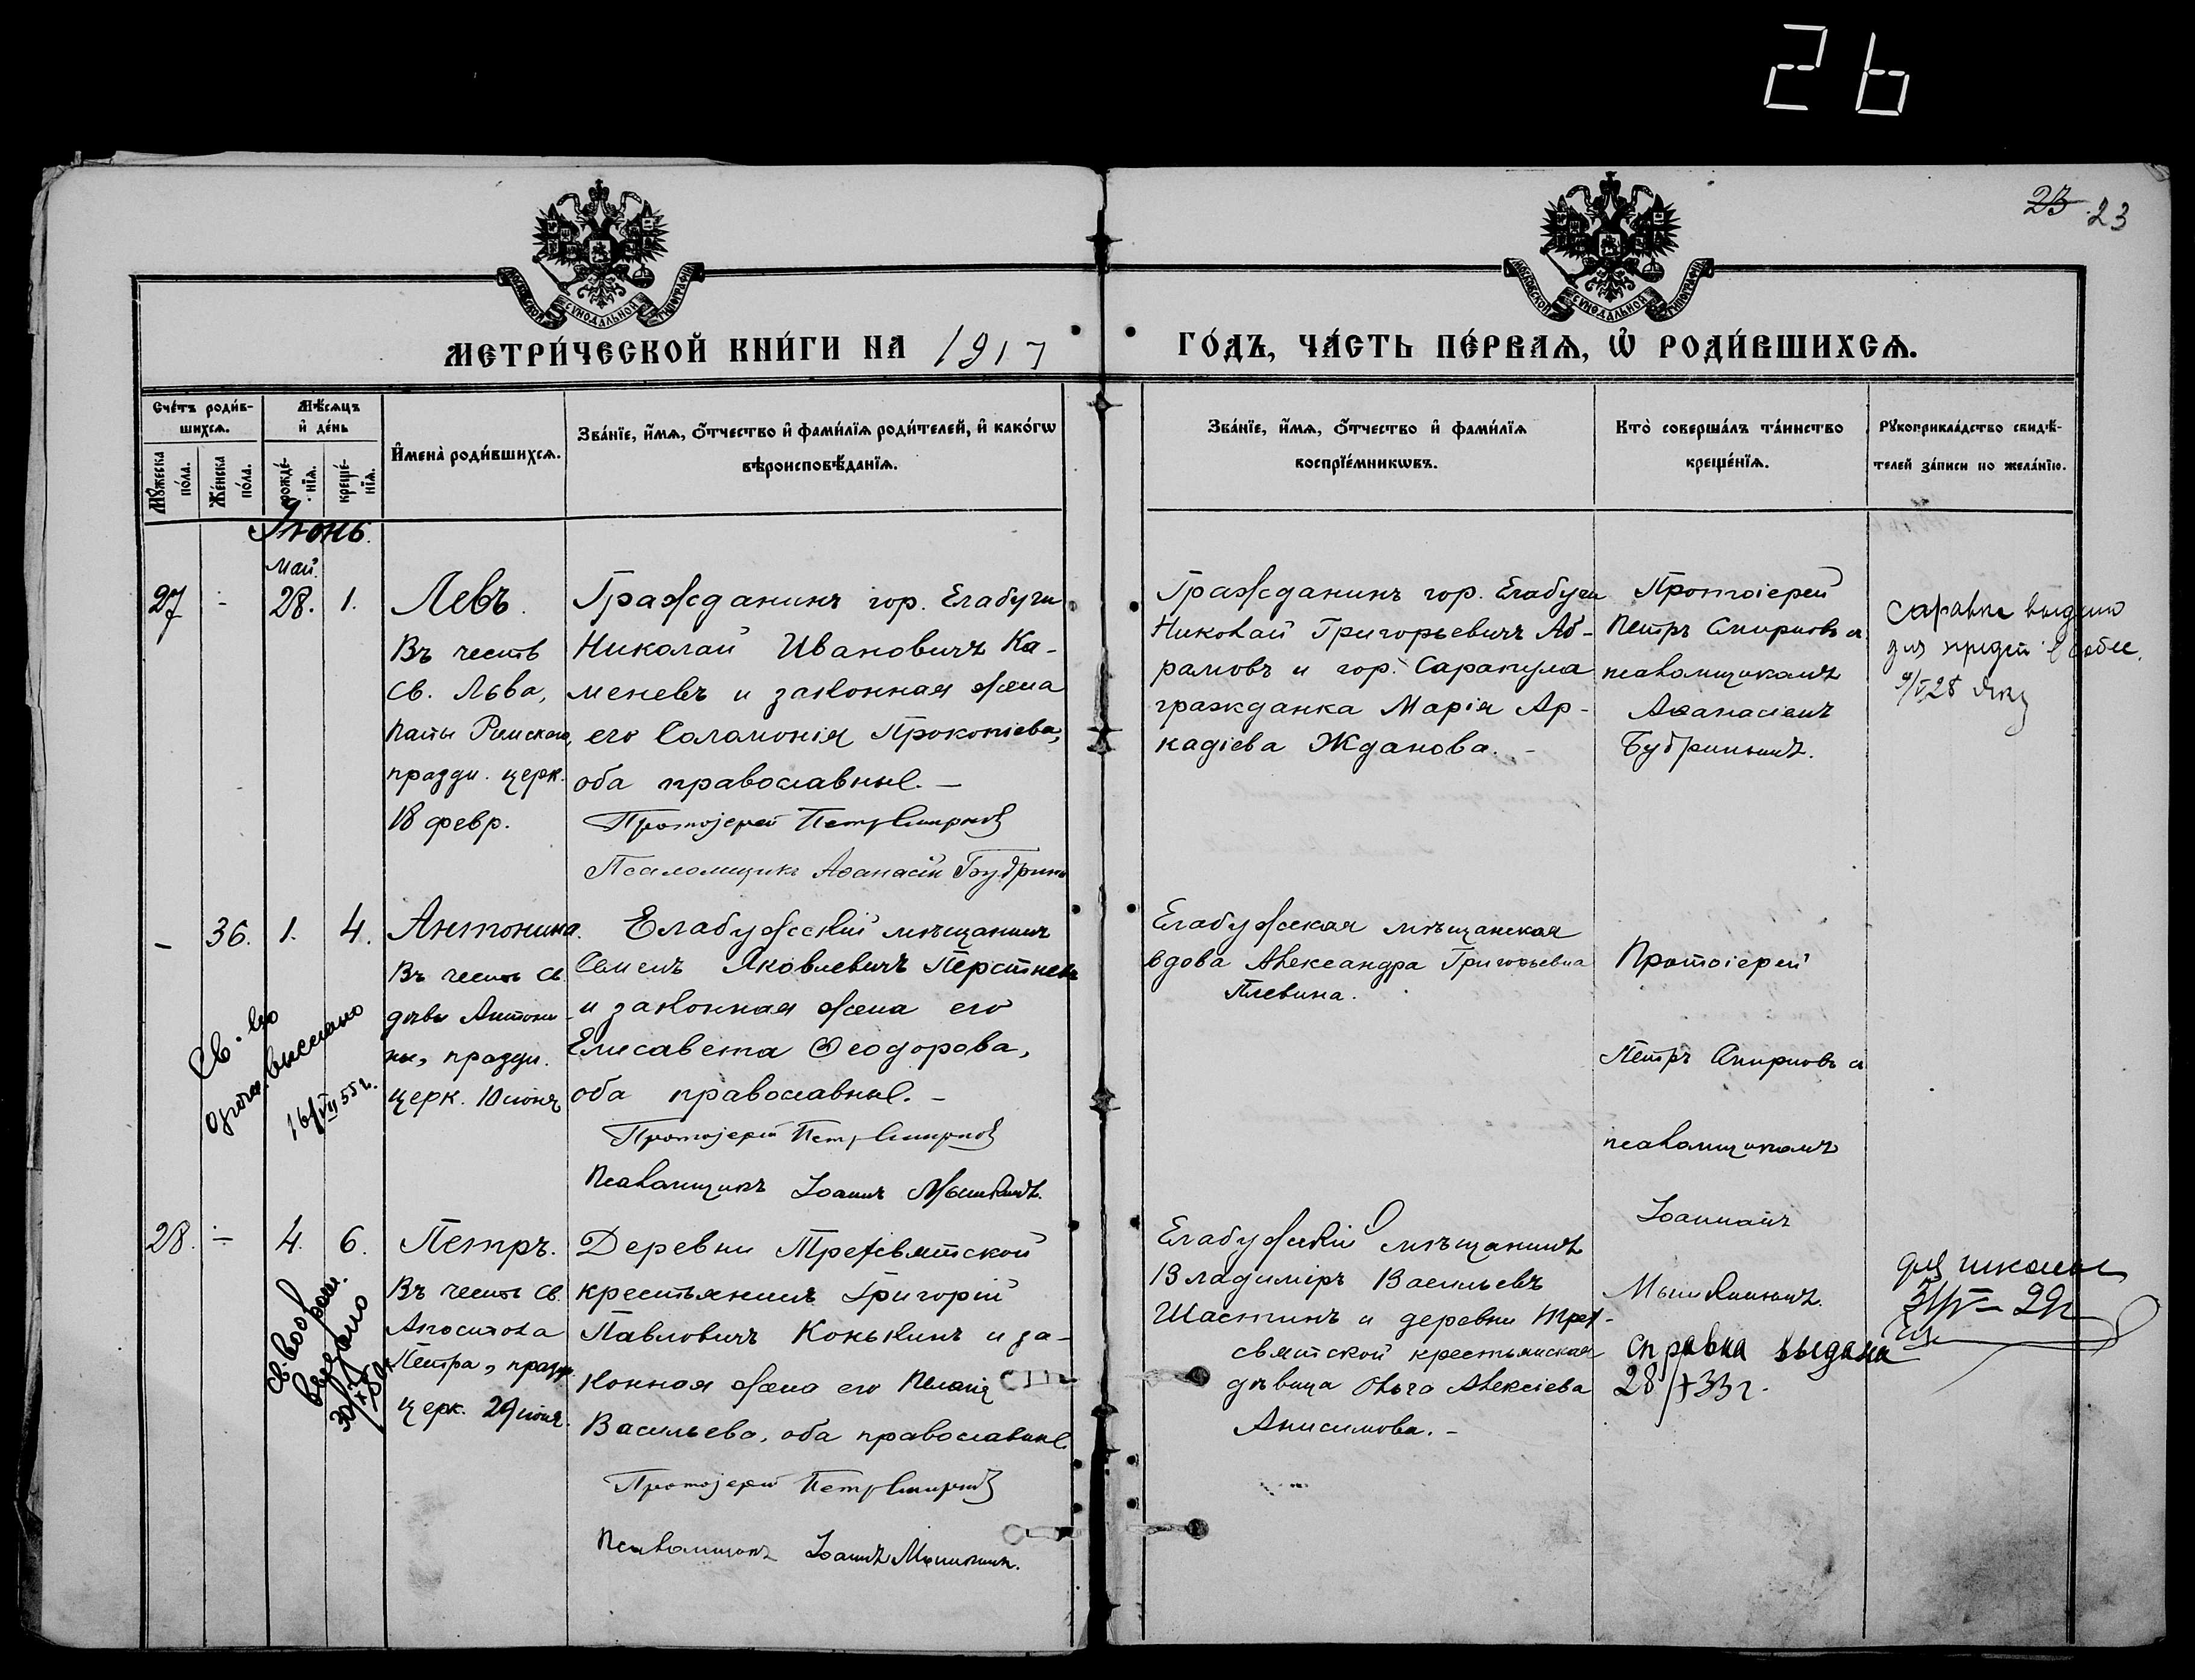 26
23 23
МОСКОВСКОЙ СѴНОДАЛЬНОЙ ТИПОГРАФІИ
МОСКОВСКОЙ СѴНОДАЛЬНОЙ ТИПОГРАФІИ
МЕТРИ́ЧЕСКОЙ КНИ́ГИ НА 1917 ГО́ДЪ, ЧА́СТЬ ПЕ́РВАѦ, Ѽ РОДИ́ВШИХСѦ.
Сче́тъ роди́в-
шихсѧ.
Мꙋ́жеска
по́ла.
Же́нска
по́ла.
Мѣ́сѧцъ
и҆ де́нь
рожде́-
нїѧ.
креще́-
нїѧ.
И҆мена̀ роди́вшихсѧ.
Зва́нїе, и҆́мѧ, ѻ҆́тчество и҆ фами́лїѧ роди́телей, и҆ како́гѡ
вѣроисповѣ́данїѧ.
Зва́нїе, и҆́мѧ, ѻ҆́тчество и҆ фами́лїѧ
воспрїе́мникѡвъ.
Кто̀ соверша́лъ та́инство
креще́нїѧ.
Рꙋкоприкла́дство свидѣ́-
телей за́писи по жела́нїю.
Іюнь.
май.
27 - 28. 1.
Левъ.
Въ честь
св. Льва,
папы Римскаго,
праздн. церк.
18 февр.
Гражданинъ гор. Елабуги
Николай Ивановичъ Ка-
меневъ и законная жена
его Соломонія Прокопіева,
оба православные. -
Протоіерей Петръ Смирновъ
Псаломщикъ Аѳанасій Бубринъ
Гражданинъ гор. Елабуги
Николай Григорьевичъ Аб-
рамовъ и гор. Сарапула
гражданка Марія Ар-
кадіева Жданова. -
Протоіерей
Петръ Смирновъ съ
псаломщикомъ
Аѳанасіемъ
Бубринымъ.
Справка выдана
для
9/V 28
- 36. 1. 4.
Антонина.
Въ честь св.
дѣвы Антони-
ны, праздн.
церк. 10 іюня
Св-во
выслано
16/VII 55 г.
Елабужскій мѣщанинъ
Семенъ Яковлевичъ Перстневъ
и законная жена его
Елисавета Ѳеодорова,
оба православные. -
Протоіерей Петръ Смирновъ
Псаломщикъ Іоаннъ Мышкинъ.
Елабужская мѣщанская
вдова Александра Григорьевна
Плевина.
Протоіерей
Петръ Смирновъ съ
псаломщикомъ
Іоанномъ
Мышкинымъ.
28. - 4. 6.
Петръ.
Въ честь св.
Апостола
Петра, праздн.
церк. 29 іюня.
выдано
Деревни Трехсвятской
крестьянинъ Григорій
Павловичъ Конькинъ и за-
конная жена его Пелагія
Васильева, оба православные.
Протоіерей Петръ Смирновъ
Псаломщикъ Іоаннъ Мышкинъ.
Елабужскій мѣщанинъ
Владиміръ Васильевъ
Шастинъ и деревни Трех-
святской крестьянская
дѣвица Ольга Алексіева
Анисимова. -
справка выдана
28/X 33 г.
для школы